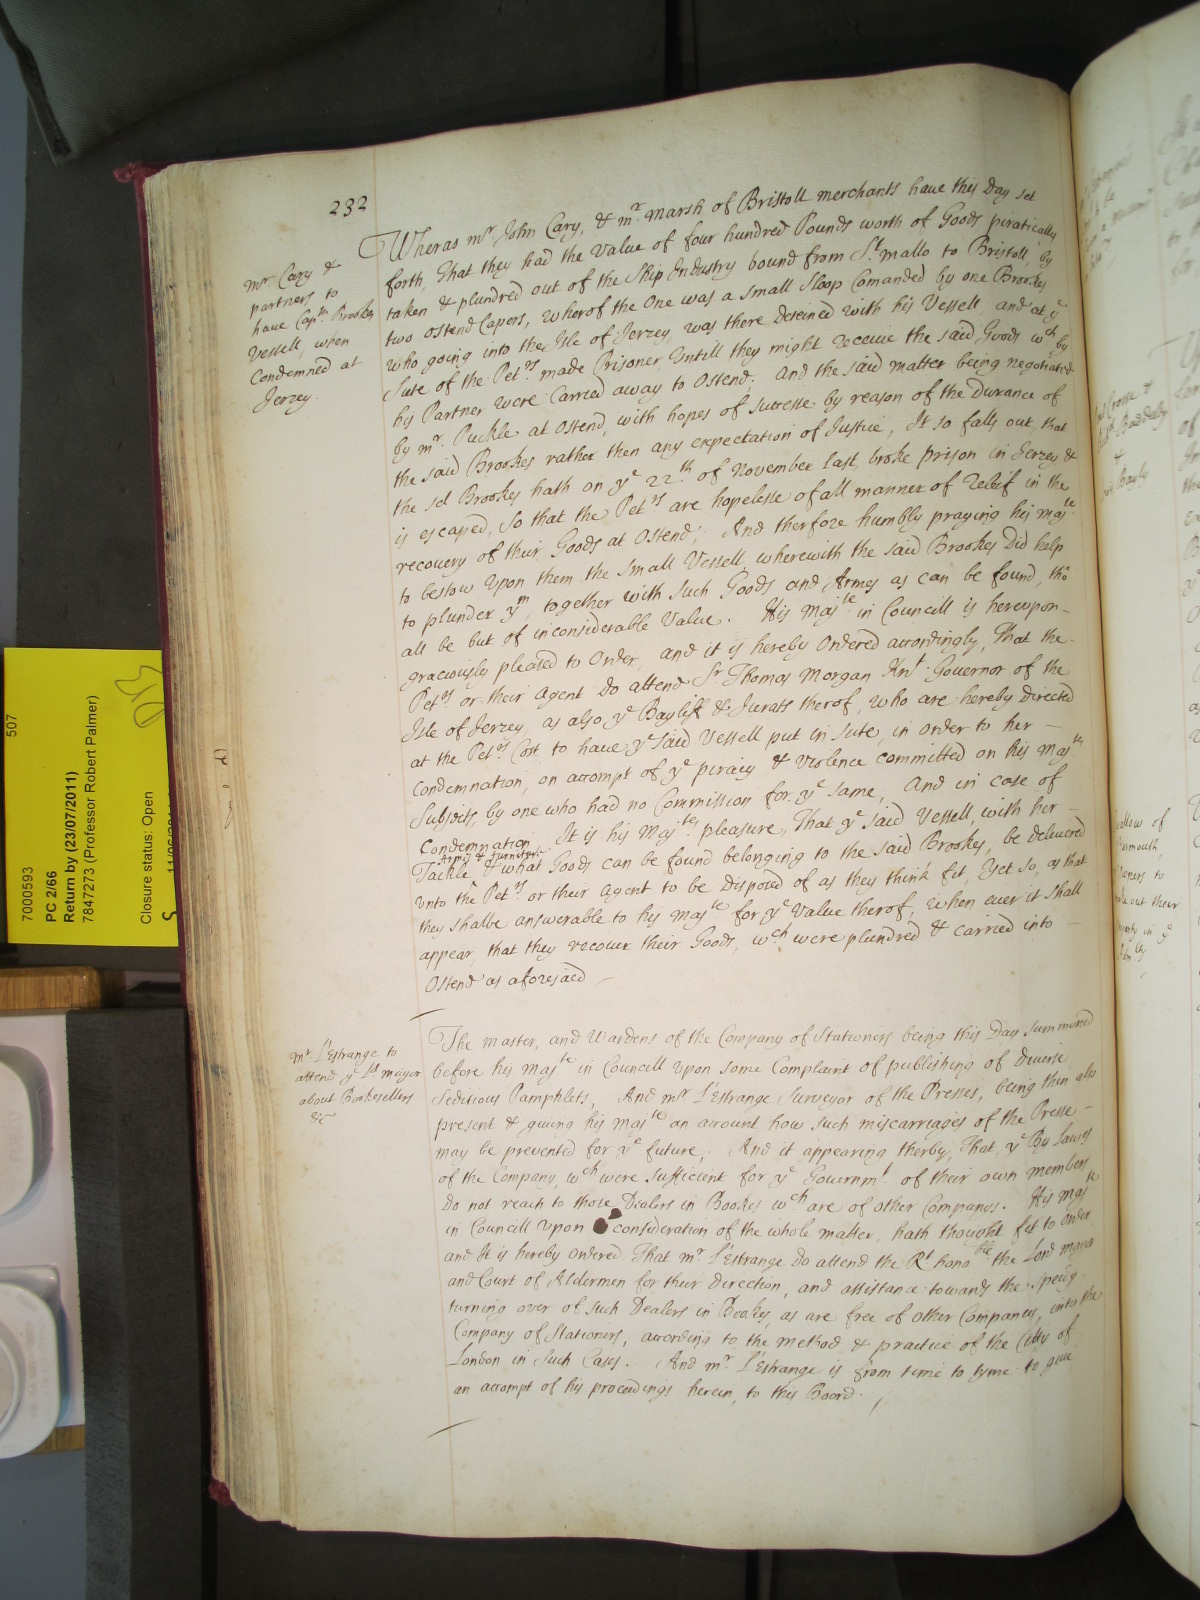 232
Wheras mr. John Cary, & mr. Marsh of Bristoll merchants have this Day set
forth, That they had the Value of four hundred Pounds worth of Goods piratically
taken & plundred out of the Ship Industry bound from St. Mallo to Bristoll, by
two Ostend Capers, wherof the One was a small Sloop Comanded by one Brookes
who going into the Isle of Jerzey, was there deteined with his Vessell, and at ye
Sute of the Petrs made Prisoner, Untill they might receive the said Goods wch by
his Partner were Carried away to Ostend; And the said matter being negotiated
by mr. Puckle at Ostend, with hopes of successe by reason of the Durance of
the said Brookes rather then any expectation of Justice, It so falls out, that
the sd Brookes hath on ye 22th of November last, broke prison in Jerzey, &
is escaped, So that the Petrs are hopelesse of all manner of Relief in the
recovery of their Goods at Ostend; And therfore humbly praying his Majte
to bestow Upon them the small Vessell, wherewith the said Brookes Did help
to plunder ym, together with such Goods and Armes as can be found, tho
all be but of inconsiderable Value. His Majte in Councill is hereupon
graciously pleased to Order, and it is hereby Ordered accordingly, That the
Petrs or their Agent do attend Sr Thomas Morgan Knt Governor of the
Isle of Jerzey, as also ye Bayliff & Jurats therof, who are hereby directed
at the Petrs Cost to have ye said Vessell put in Sute, in order to her
Condemnation, on accompt of ye piracy & violence committed on his Majtes
Subjects, by one who had no Commission for ye same, And in case of
Condemnation, It is his Majtes pleasure, That ye said Vessell, with her
Armes & Furniture
Tackle & what Goods can be found belonging to the said Brookes, be delivered
vnto the Petrs or their Agent to be Disposed of as they think fit, Yet so, as that
they shalbe answerable to his Majte for ye Value therof, when ever it shall
appear, that they recover their Goods, wch were plundred & carried into
Ostend as aforesaid
mr. Cary &
partners to
have Captn Brookes
Vessell, when
Condemned at
Jerzey.
The Master, and Wardens of the Company of Stationers being this Day summoned
before his Majte in Councill Upon some Complaint of publishing of diverse
Seditious Pamphlets, And mr L'Estrange Surveyor of the Presses, being then also
present & giving his Majte an account how such miscarriages of the Presse
may be prevented for ye future; And it appearing therby, That ye By Lawes
of the Company, wch were sufficient for ye Governmt of their own members
do not reach to those Dealers in Bookes wch are of other Companys. His Majte
in Councill Upon consideration of the whole matter, hath thought fit to order
and It is hereby Ordered That mr L'Estrange do attend the Rt honoble the Lord Mayor
and Court of Aldermen for their direction, and assistance towards the speedy
turning over of such Dealers in Bookes, as are free of other Companies, into the
Company of Stationers, according to the method & practice of the Citty of
London in such Cases. And mr. L'Estrange is from time to tyme to give
an accompt of his proceedings herein, to this Board.
mr L'Estrange to
attend ye Ld mayor
about Bookesellers
&c
507
7000593
PC 2/66
Return by (23/07/2011)
7847273 (Professor Robert Palmer)
Closure status: Open